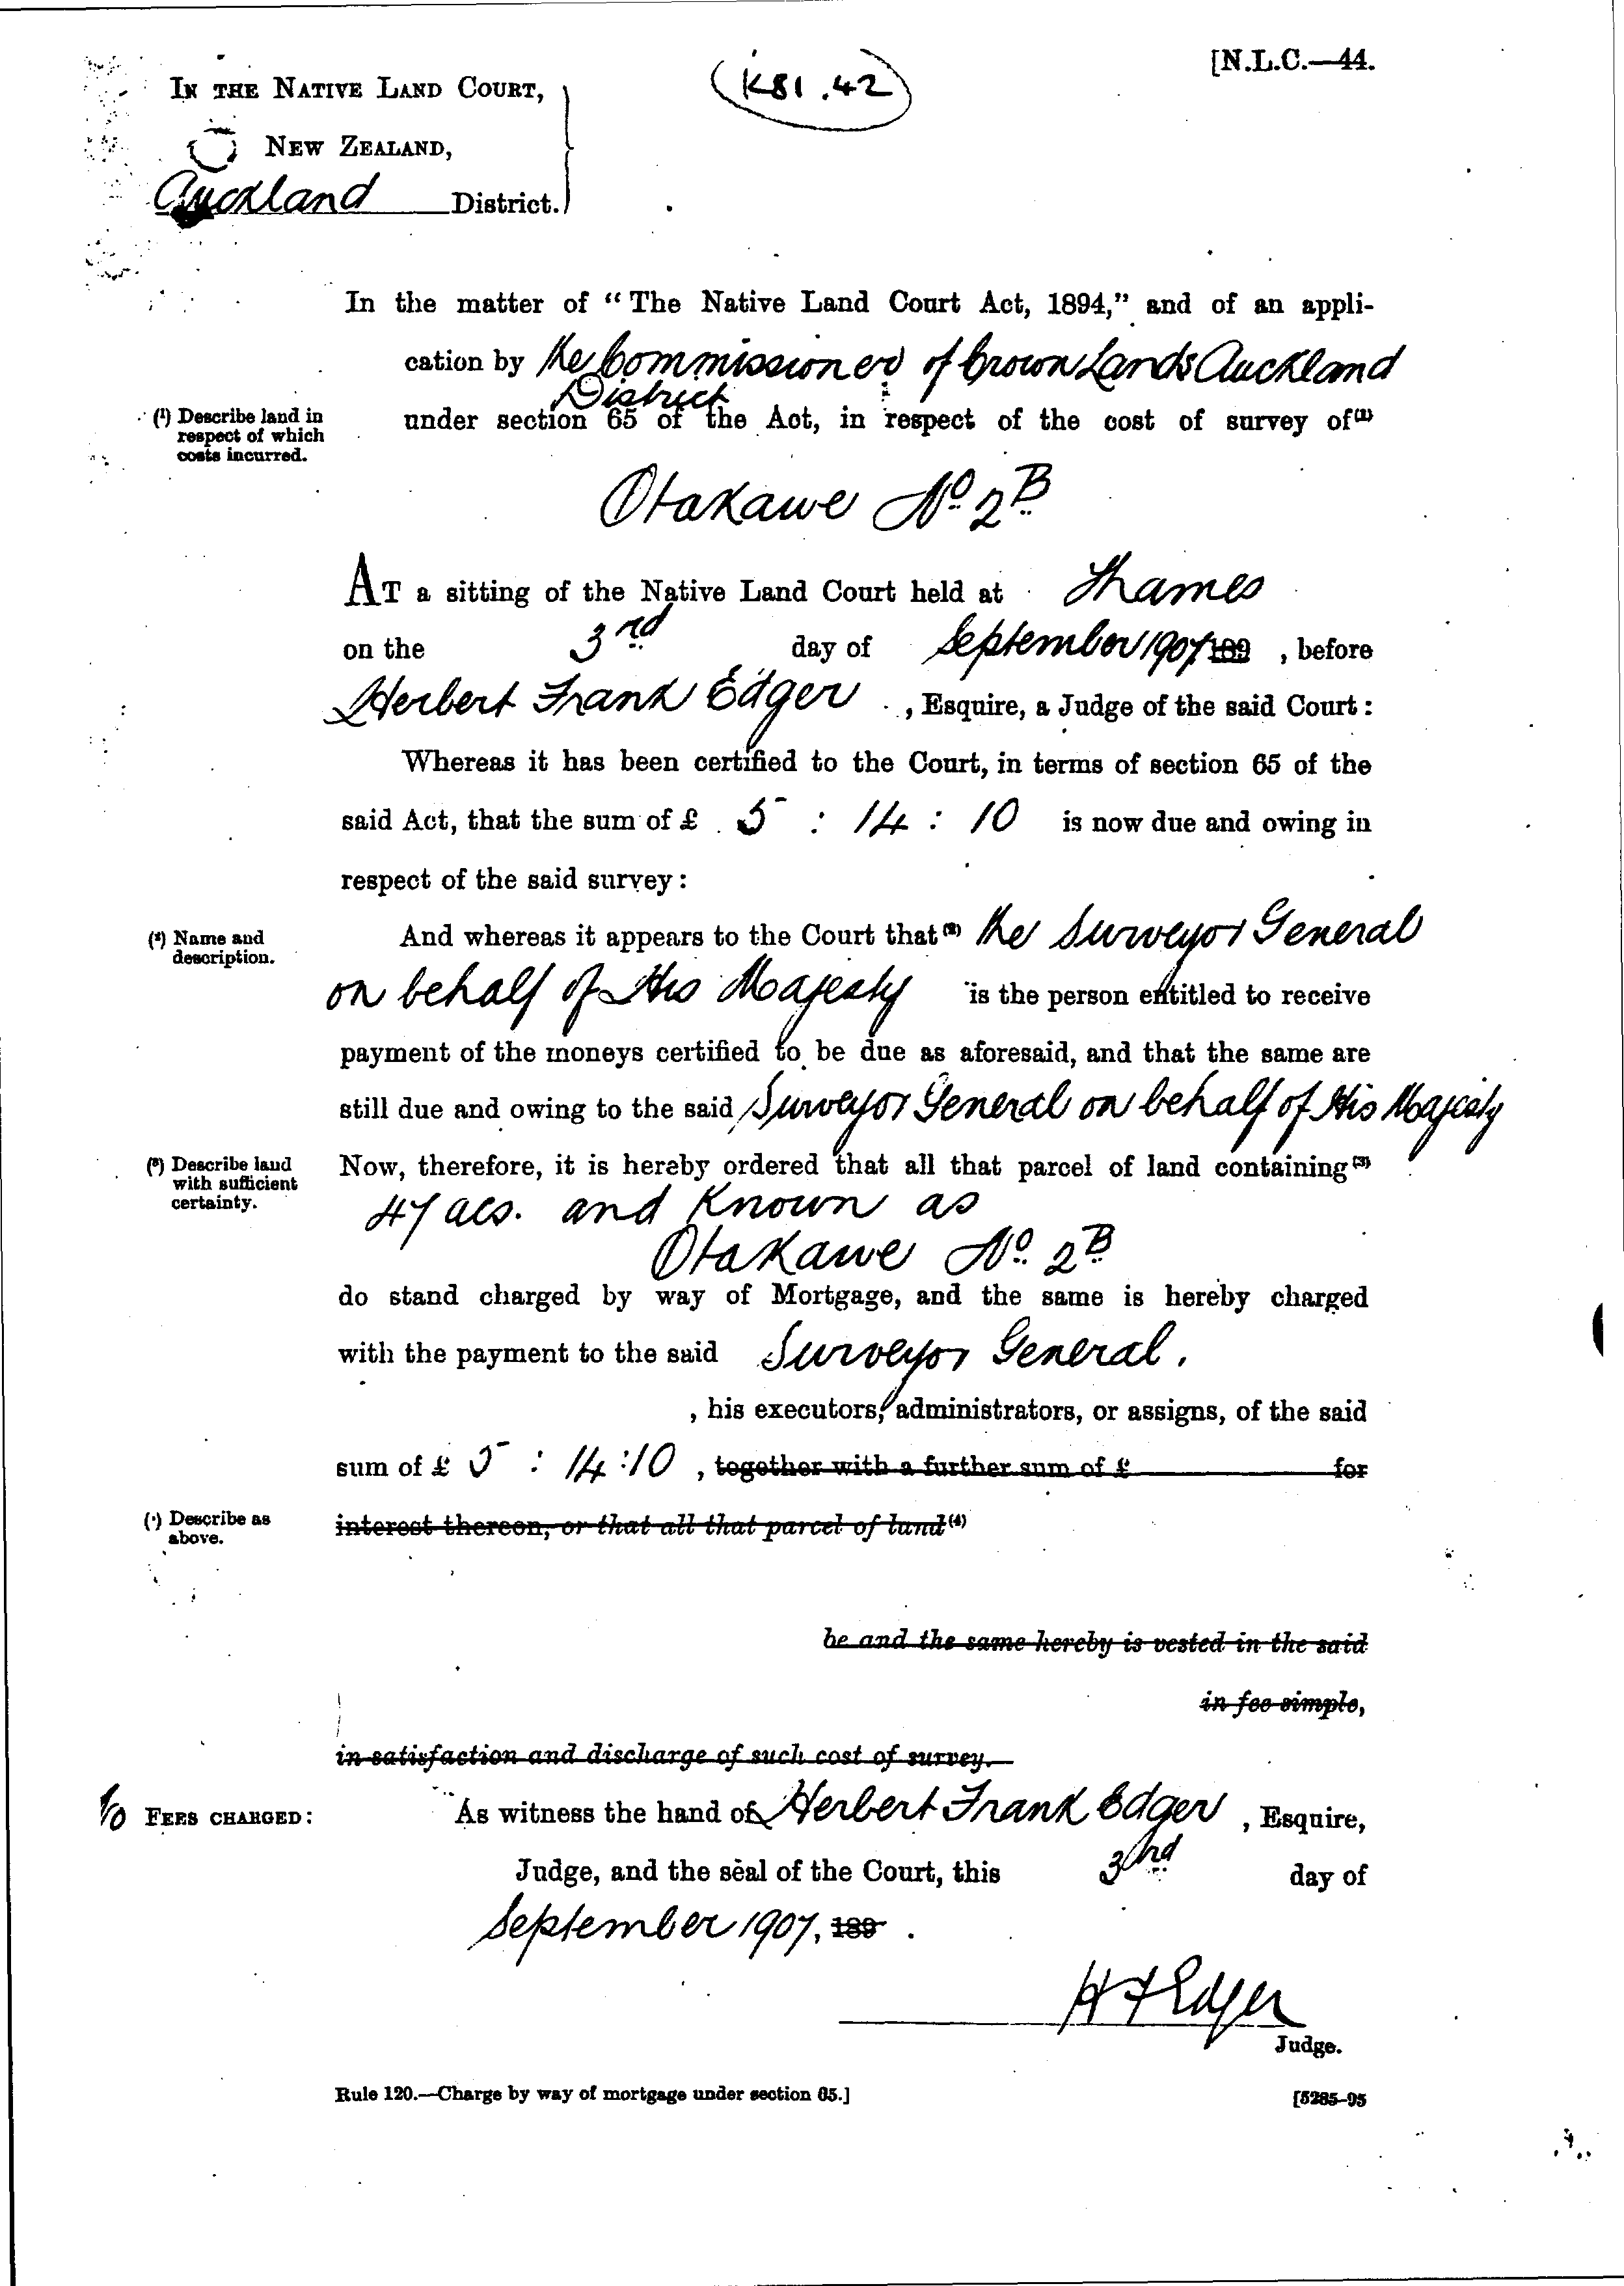 [N.L.C.—44.
K81.42
IN THE NATIVE LAND COURT,
NEW ZEALAND,
Auckland District.
In the matter of “The Native Land Court Act, 1894,” and of an appli-
cation by the Commissioner of Crown Lands Auckland
District
(1) Describe land in respect of which costs incurred.
under section 65 of the Act, in respect of the cost of survey of(1)
Otakawe No. 2B
AT a sitting of the Native Land Court held at Thames
on the 3rd day of September 1907 189 , before
Herbert Frank Edger , Esquire, a Judge of the said Court:
Whereas it has been certified to the Court, in terms of section 65 of the
said Act, that the sum of £ 5 : 14 : 10 is now due and owing in
respect of the said survey:
(2) Name and description.
And whereas it appears to the Court that(2) the Surveyor General
on behalf of His Majesty is the person entitled to receive
payment of the moneys certified to be due as aforesaid, and that the same are
still due and owing to the said Surveyor General on behalf of His Majesty
(3) Describe land with sufficient certainty.
Now, therefore, it is hereby ordered that all that parcel of land containing(3)
47 acs. and Known as
Otakawe No. 2B
do stand charged by way of Mortgage, and the same is hereby charged
with the payment to the said Surveyor General.
, his executors, administrators, or assigns, of the said
sum of £ 5 : 14 : 10 , together with a further sum of £ for
(4) Describe as above.
interest thereon, or that all that parcel of land(4)
be and the same hereby is vested in the said
in fee simple,
in satisfaction and discharge of such cost of survey.
FEES CHARGED:
As witness the hand of Herbert Frank Edger , Esquire,
Judge, and the seal of the Court, this 3rd day of
September 1907, 189 .
H F Edger
Judge.
Rule 120.—Charge by way of mortgage under section 65.]
[5285–95